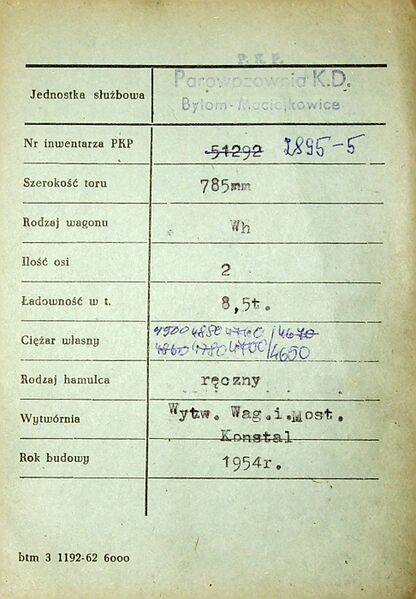 P. K. P.
Jednostka służbowa Parowozownia K.D.
Bytom-Maciejkowice
Nr inwentarza PKP 51292 2895-5
Szerokość toru 785mm
Rodzaj wagonu Wh
Ilość osi 2
Ładowność w t. 8,5t.
Ciężar własny 4900 4850 4760 / 4670
4860 4780 4700 / 4650
Rodzaj hamulca ręczny
Wytwórnia Wytw. Wag.i.Most.
Konstal
Rok budowy 1954r.
btm 3 1192-62 6000